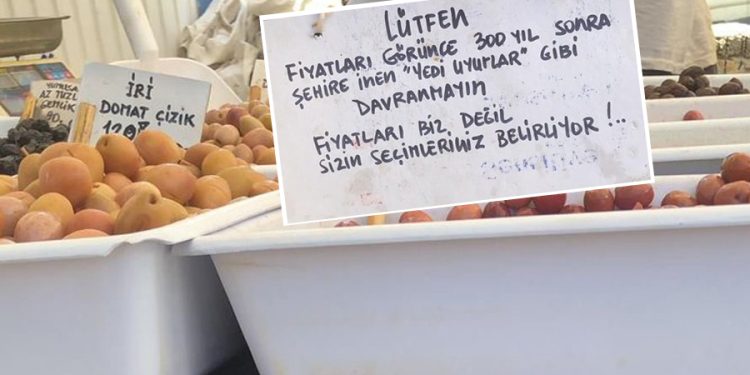 LÜTFEN
FİYATLARI GÖRÜNCE 300 YIL SONRA
ŞEHİRE İNEN "YEDİ UYURLAR" GİBİ
DAVRANMAYIN
FİYATLARI BİZ DEĞİL
SİZİN SEÇİMLERİNİZ BELİRLİYOR!..
İRİ
DOMAT ÇİZİK
120₺
AZ TUZL
GEMLİK
90.